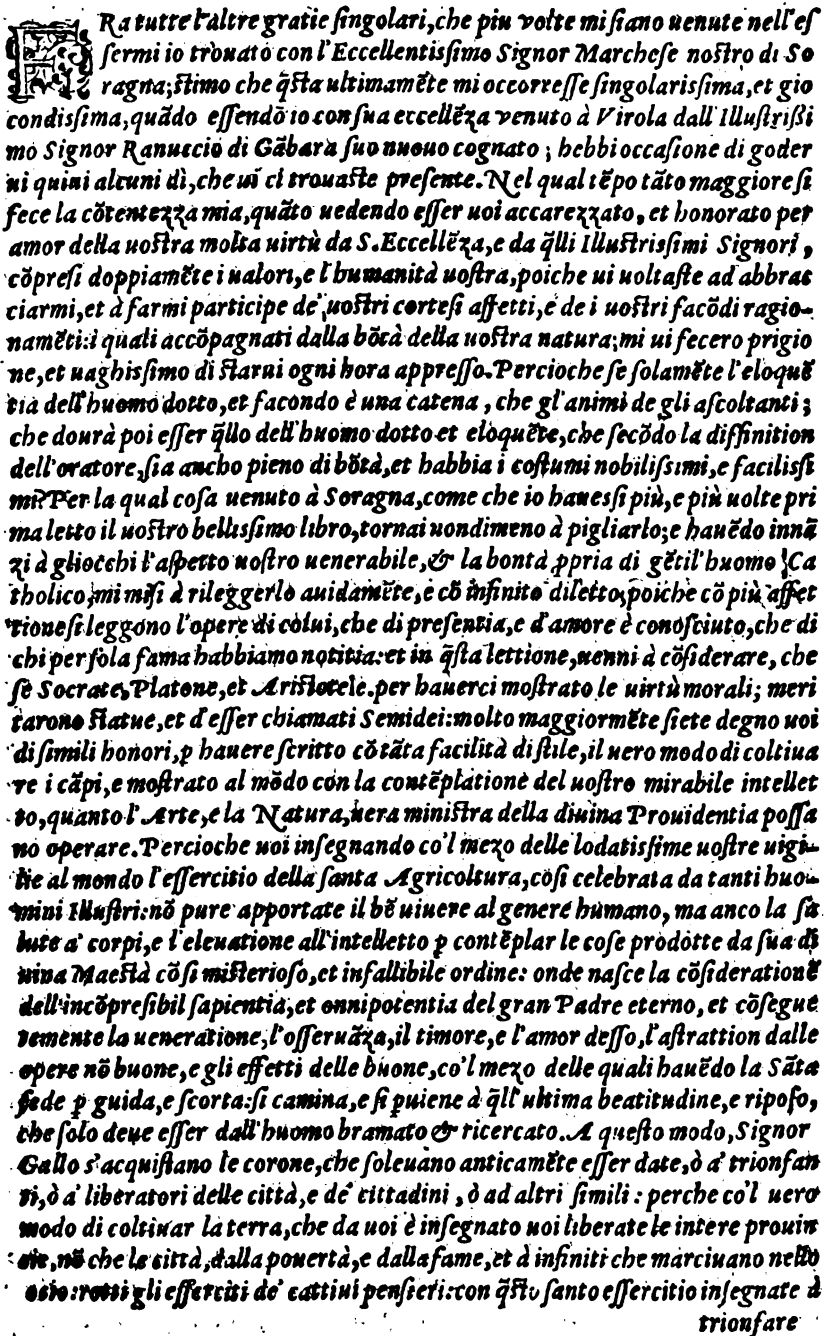 FRa tutte l'altre gratie singolari, che piu volte mi siano uenute nell'es
sermi io trouato con l'Eccellentissimo Signor Marchese nostro di So
ragna; stimo che q̃sta ultimamẽte mi occorresse singolarissima, et gio
condissima, quãdo essendo io con sua eccellẽza venuto à Virola dall'Illustrißi
mo Signor Ranuccio di Gãbara suo nuouo cognato; hebbi occasione di goder
ui quiui alcuni dì, che ui ci trouaste presente. Nel qual tẽpo tãto maggiore si
fece la cõtentezza mia, quãto uedendo esser uoi accarezzato, et honorato per
amor della uostra molta uirtù da S. Eccellẽza, e da q̃lli Illustrissimi Signori,
cõpresi doppiamẽte i ualori, e l'humanità uostra, poiche ui uoltaste ad abbrac
ciarmi, et à farmi participe de' uostri cortesi affetti, e de i uostri facõdi ragio-
namẽti: i quali accõpagnati dalla bõtà della uostra natura; mi ui fecero prigio
ne, et uaghissimo di starui ogni hora appresso. Percioche se solamẽte l'eloquẽ
tia dell'huomo dotto, et facondo è una catena, che gl'animi de gli ascoltanti;
che dourà poi esser q̃llo dell'huomo dotto et eloquẽte, che secõdo la diffinition
dell'oratore, sia ancho pieno di bõtà, et habbia i costumi nobilissimi, e facilissi
mi? Per la qual cosa uenuto à Soragna, come che io hauessi più, e più uolte pri
ma letto il uostro bellissimo libro, tornai nondimeno à pigliarlo; e hauẽdo innã
zi à gliocchi l'aspetto uostro uenerabile, & la bontà ꝓpria di gẽtil'huomo Ca
tholico, mi misi à rileggerlo auidamẽte, e cõ infinito diletto, poiche cõ più affet
tione si leggono l'opere di colui, che di presentia, e d'amore è conosciuto, che di
chi per sola fama habbiamo notitia: et in q̃sta lettione, uenni à cõsiderare, che
se Socrate, Platone, et Aristotele. per hauerci mostrato le uirtù morali; meri
tarono statue, et d'esser chiamati Semidei: molto maggiormẽte siete degno uoi
di simili honori, ꝑ hauere scritto cõ tãta facilità di stile, il uero modo di coltiua
re i cãpi, e mostrato al mõdo con la contẽplatione del uostro mirabile intellet
to, quanto l'Arte, e la Natura, uera ministra della diuina Prouidentia possa
no operare. Percioche uoi insegnando co'l mezo delle lodatissime uostre uigi-
lie al mondo l'essercitio della santa Agricoltura, cosi celebrata da tanti huo-
mini Illustri: nõ pure apportate il bẽ uiuere al genere humano, ma anco la sa
lute a' corpi, e l'eleuatione all'intelletto ꝑ contẽplar le cose prodotte da sua di
uina Maestà cõ si misterioso, et infallibile ordine: onde nasce la cõsideratione
dell'incõpresibil sapientia, et onnipotentia del gran Padre eterno, et cõsegue
temente la ueneratione, l'osseruãza, il timore, e l'amor desso, l'astrattion dalle
opere nõ buone, e gli effetti delle buone, co'l mezo delle quali hauẽdo la Sãta
fede ꝑ guida, e scorta: si camina, e si ꝑuiene à q̃ll'ultima beatitudine, e riposo,
che solo deue esser dall'huomo bramato & ricercato. A questo modo, Signor
Gallo s'acquistano le corone, che soleuano anticamẽte esser date, ò a' trionfan
ti, ò a' liberatori delle città, e de' cittadini, ò ad altri simili: perche co'l uero
modo di coltiuar la terra, che da uoi è insegnato uoi liberate le intere prouin
cie, nõ che le città, dalla pouertà, e dalla fame, et à infiniti che marciuano nello
ocio: rotti gli esserciti de' cattiui pensieri: con q̃sto santo essercitio insegnate à
trionfare